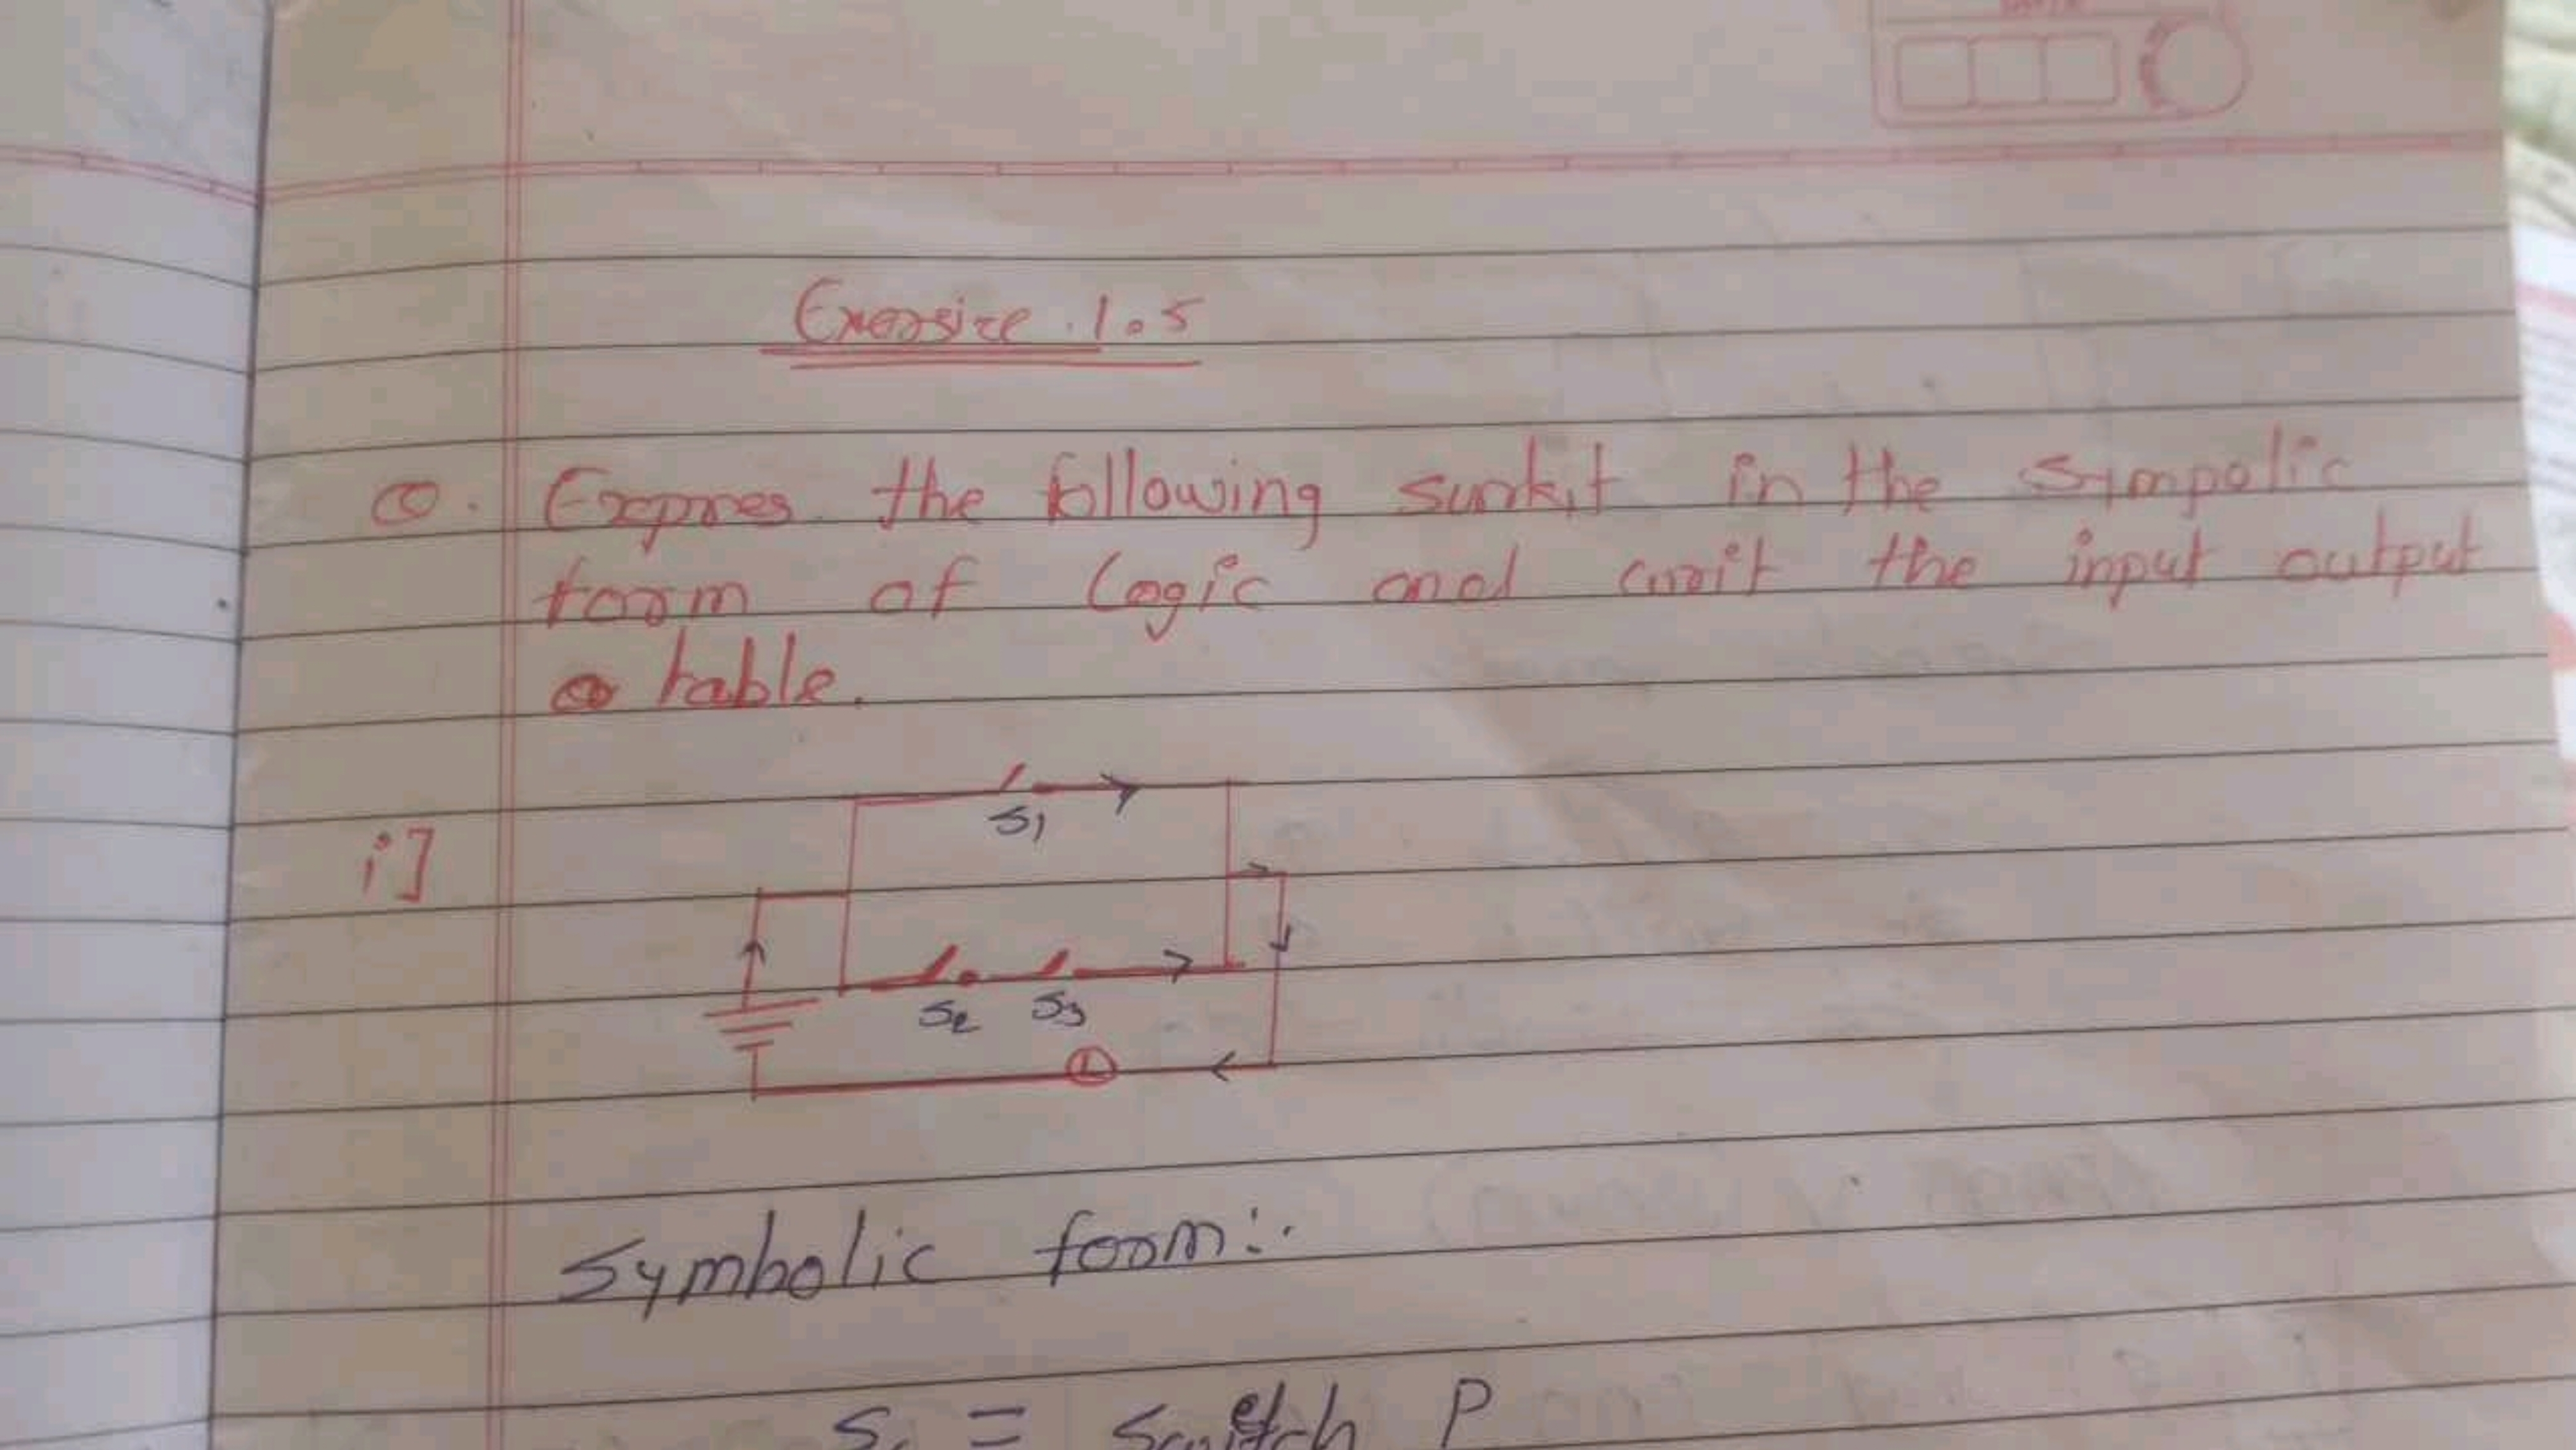 Exersize 1.5
Q. Expres the following surkit in the Simpolic
form of Logic and writ the input output
table.
i]
S1
S2 S3
L
Symbolic form:
S1 = Switch P